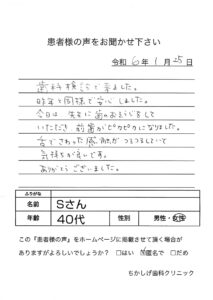 患者様の声をお聞かせ下さい
令和 6 年 1 月 25 日
歯科検診で来ました。
昨年と同様で安心しました。
今日は、先生に歯のおそうじをして
いただき、前歯がピカピカになりました。
舌でさわった感触がつるつるしていて
気持ちが良いです。
ありがとうございました。
ふりがな
名前 Sさん
年齢 40代 性別 男性・女性
この『患者様の声』をホームページに掲載させて頂く場合が
ありますがよろしいでしょうか? □はい □匿名で □だめ
ちかしげ歯科クリニック